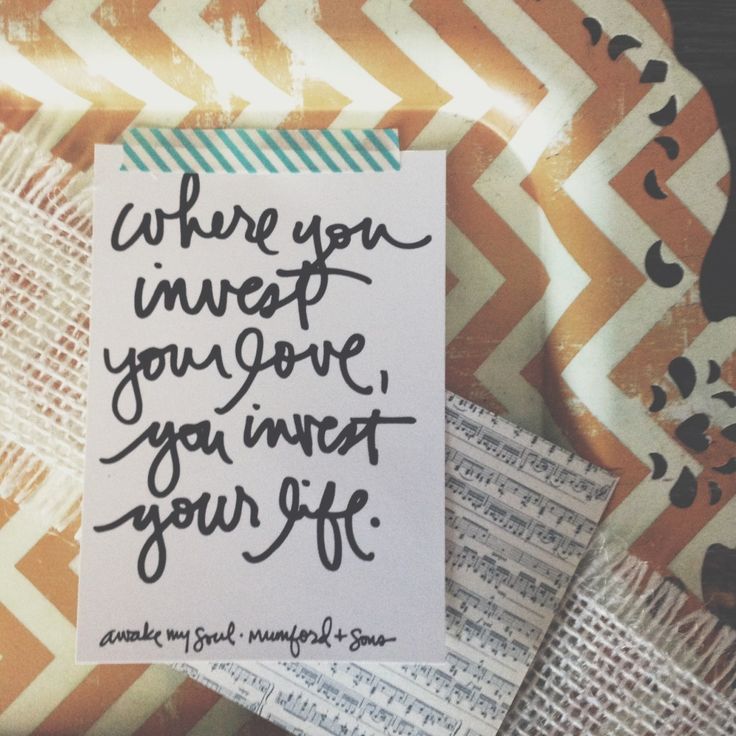 where you
invest
your love,
you invest
your life.
awake my soul · mumford + sons